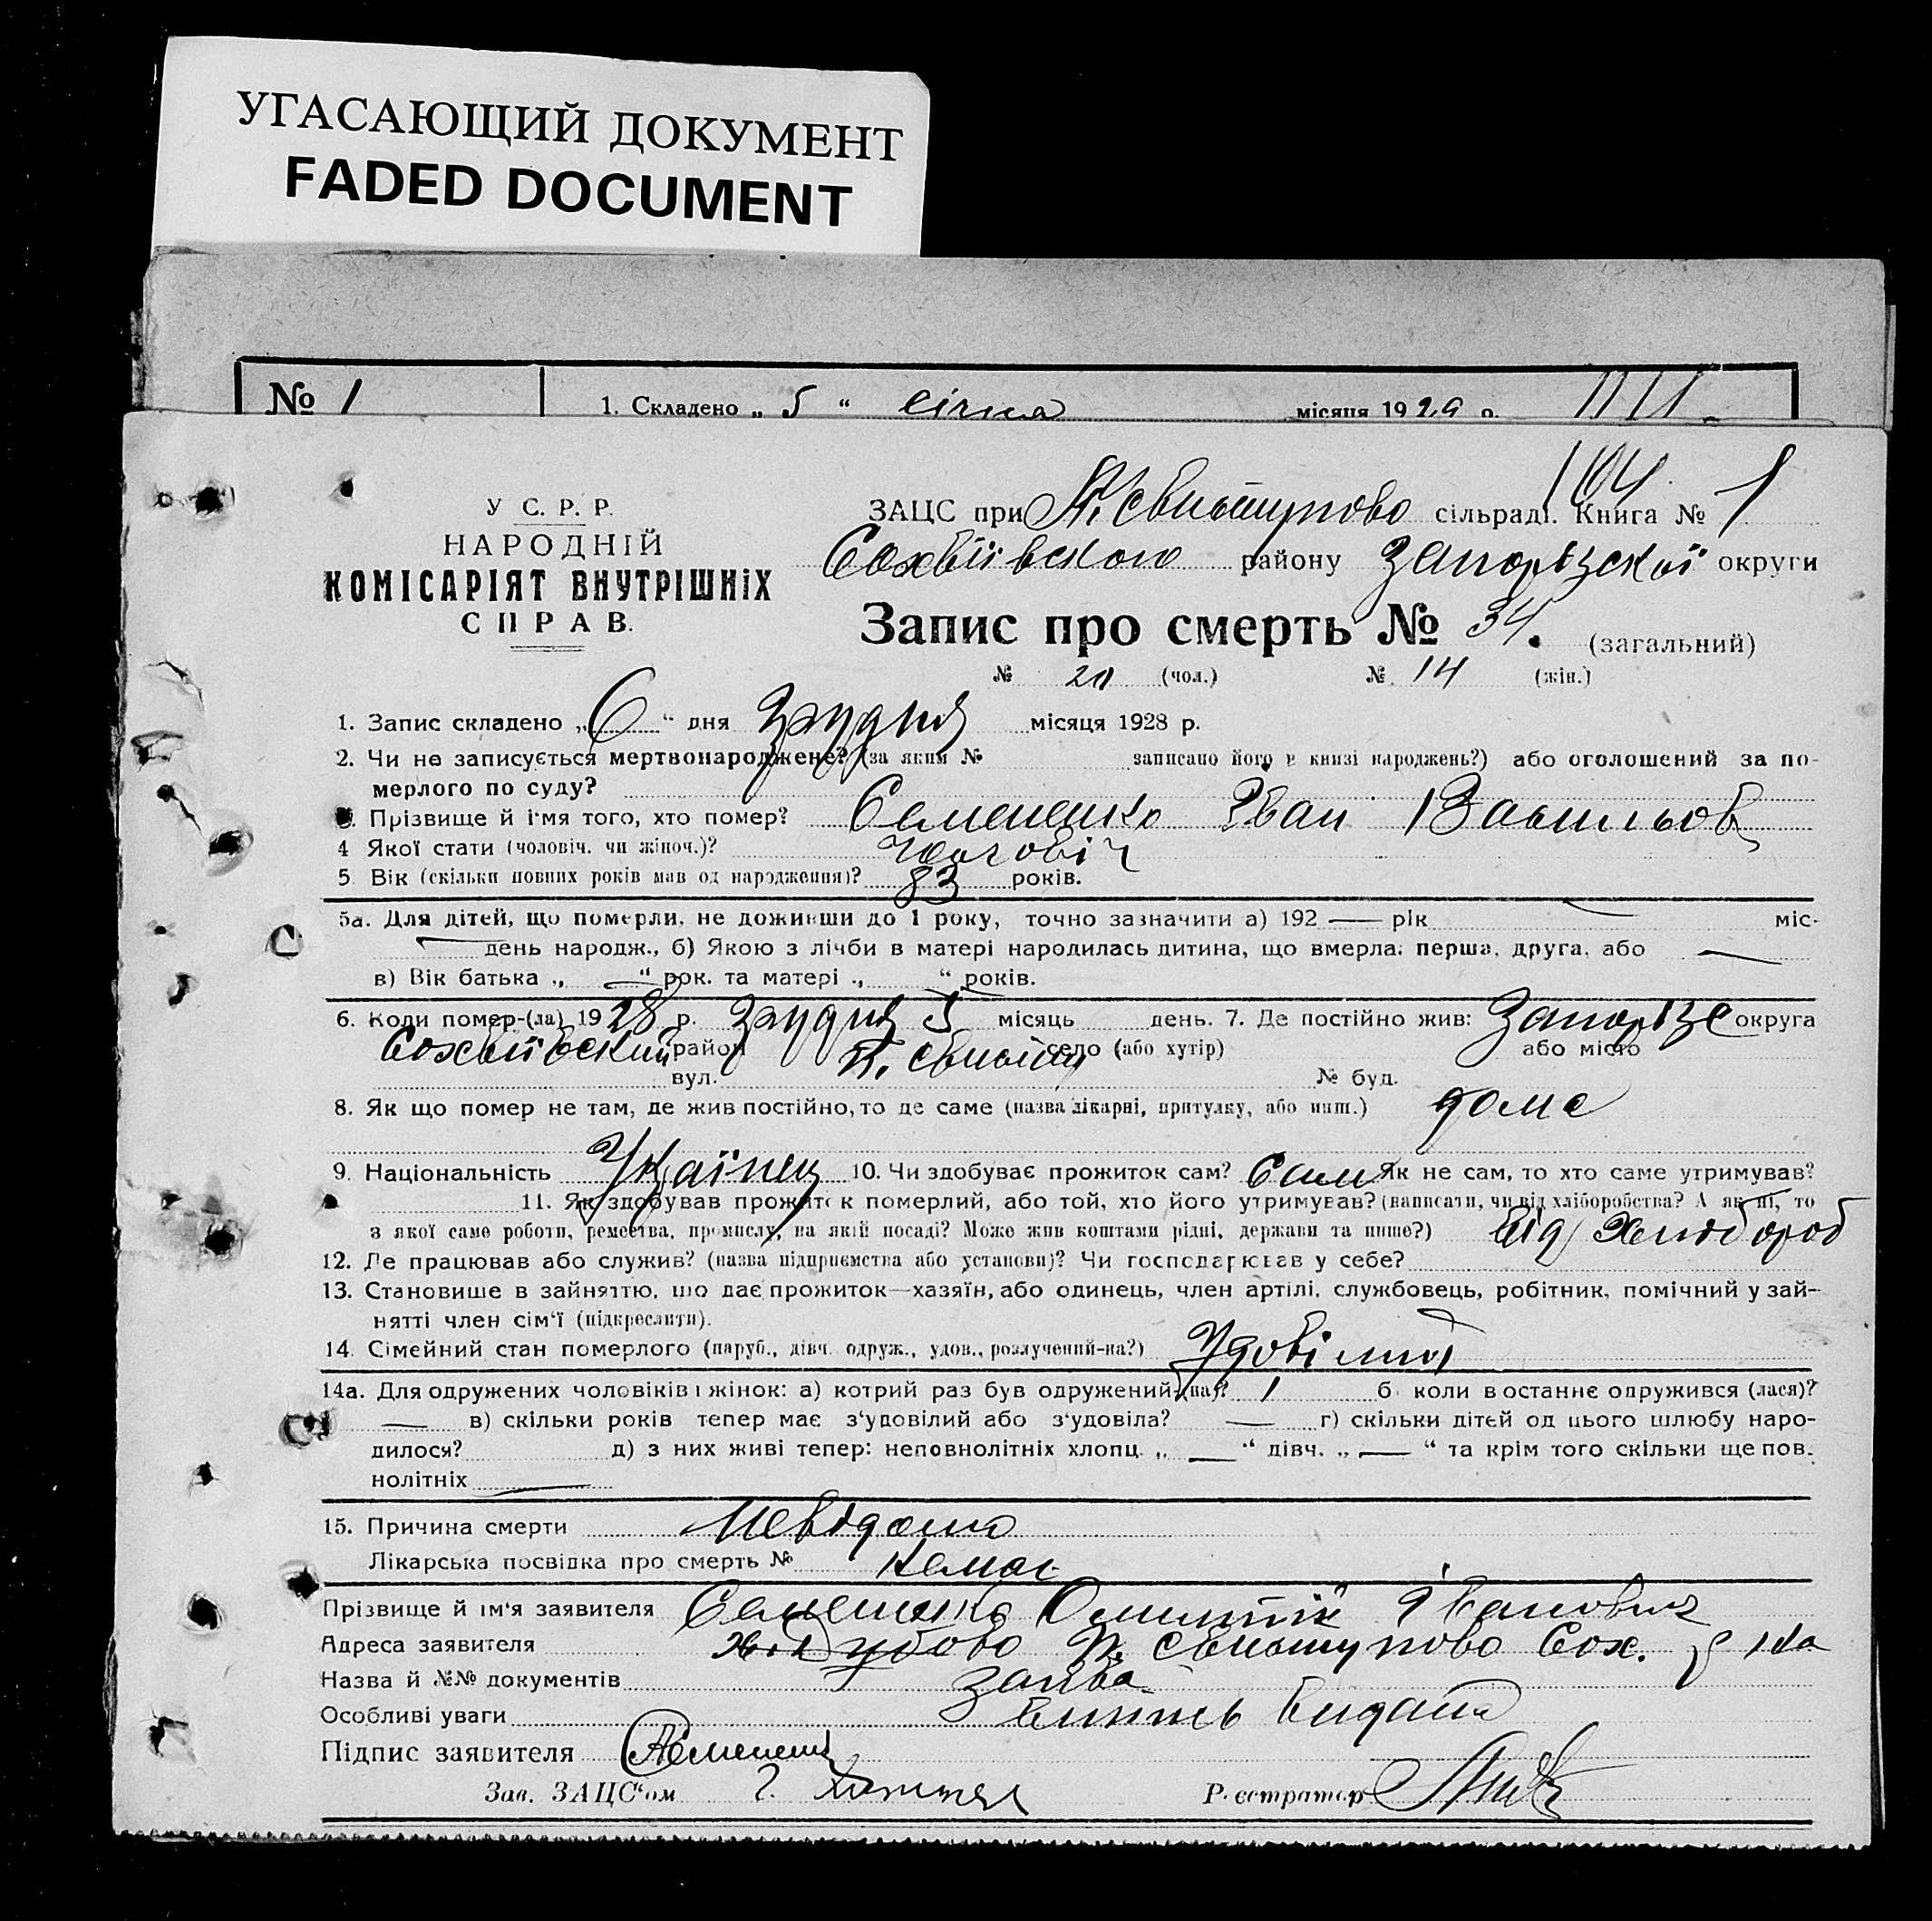 УГАСАЮЩИЙ ДОКУМЕНТ
FADED DOCUMENT
№ 1
1. Складено „ 5 “ січня місяця 1929 р.
104
У С. Р. Р.
НАРОДНІЙ
КОМІСАРІЯТ ВНУТРІШНІХ
СПРАВ.
ЗАЦС при сільраді. Книга № 1
району Запорізської округи
Запис про смерть № 34. (загальний)
№ 20 (чол.) № 14 (жін.)
1. Запис складено „ 6 “ дня грудня місяця 1928 р.
2. Чи не записується мертвонароджене? (за яким № записано його в книзі народжень?) або оголошений за по-
мерлого по суду?
3. Прізвище й ім'я того, хто помер? Семененко Іван Васильов
4 Якої стати (чоловіч. чи жіноч.)? чоловіч
5. Вік (скільки повних років мав од народження)? 83 років.
5а. Для дітей, що померли, не доживши до 1 року, точно зазначити а) 192 — рік — міс-
— день народж., б) Якою з лічби в матері народилась дитина, що вмерла: перша, друга, або —
в) Вік батька „ — “ рок. та матері „ — “ років.
6. Коли помер-(ла) 1928 р. грудня 5 місяць день. 7. Де постійно жив: округа
район село (або хутір) або місто
вул. № буд.
8. Як що помер не там, де жив постійно, то де саме (назва лікарні, притулку, або инш.) дома
9. Національність Українец 10. Чи здобуває прожиток сам? Сам Як не сам, то хто саме утримував?
11. Як здобував прожиток померлий, або той, хто його утримував? (написати, чи від хліборобства? А як ні, то
з якої саме роботи, ремества, промислу, на якій посаді? Може жив коштами рідні, держави та инше?) Від Хлібороб
12. Де працював або служив? (назва підприємства або установи)? Чи господарював у себе?
13. Становище в зайняттю, що дає прожиток—хазяїн, або одинець, член артілі, службовець, робітник, помічний у зай-
нятті член сім'ї (підкреслити).
14. Сімейний стан померлого (паруб., дівч. одруж., удов., розлучений-на?)
14а. Для одружених чоловіків і жінок: а) котрий раз був одружений(на)? 1 б) коли в останнє одружився (лася)?
— в) скільки років тепер має з'удовілий або з'удовіла? — г) скільки дітей од цього шлюбу наро-
дилося? д) з них живі тепер: неповнолітніх хлопц. „ — “ дівч. „ — “ та крім того скільки ще пов.
нолітніх —
15. Причина смерти Невідома
Лікарська посвідка про смерть № Немає
Прізвище й ім'я заявителя Семененко Іванович
Адреса заявителя
Назва й №№ документів заява
Особливі уваги видана
Підпис заявителя
Зав. ЗАЦС'ом Реєстратор